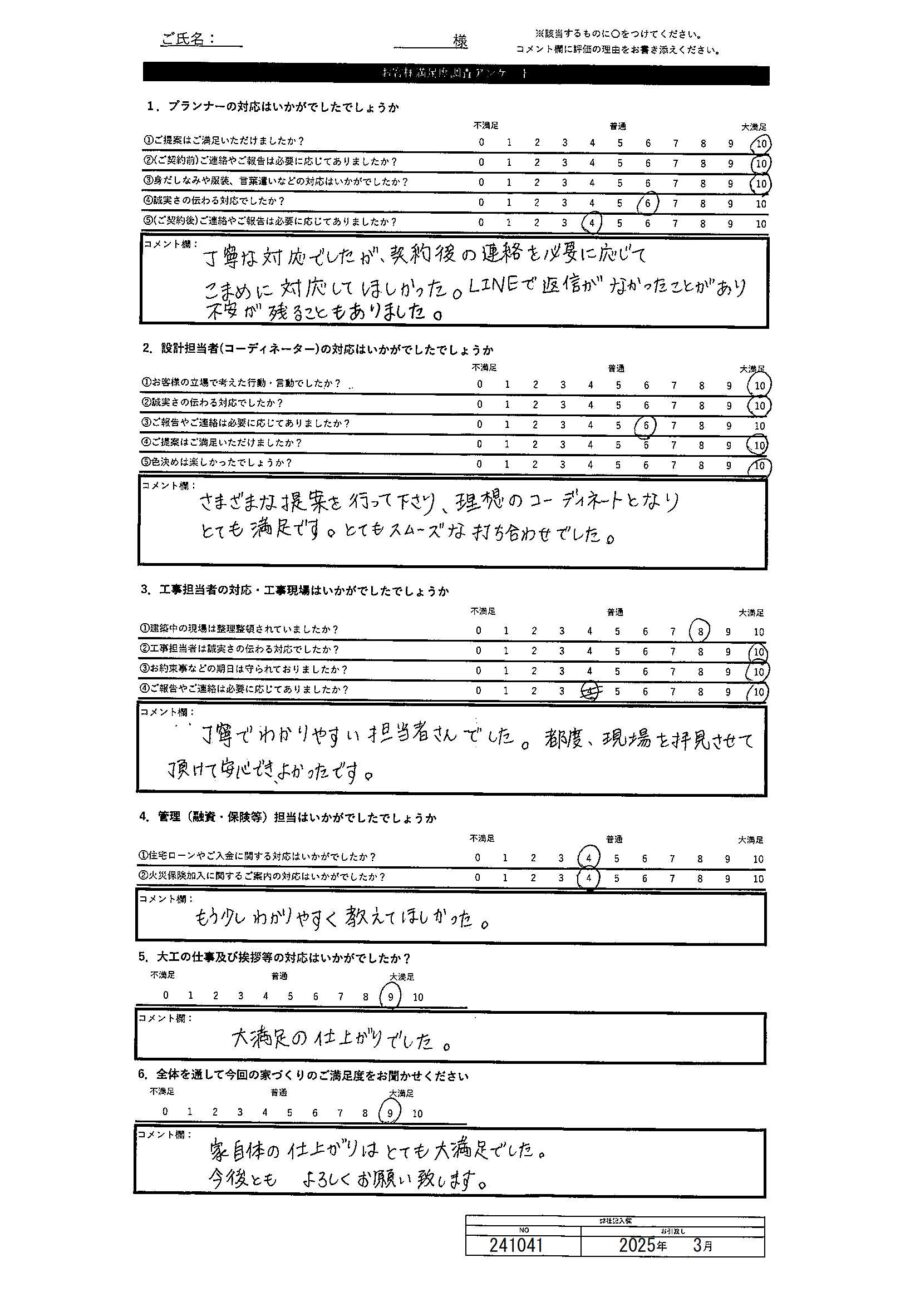 ご氏名： 様
※該当するものに〇をつけてください。
コメント欄に評価の理由をお書き添えください。
お客様満足度調査アンケート
1．プランナーの対応はいかがでしたでしょうか
不満足 普通 大満足
①ご提案はご満足いただけましたか？ 0 1 2 3 4 5 6 7 8 9 10
②(ご契約前)ご連絡やご報告は必要に応じてありましたか？ 0 1 2 3 4 5 6 7 8 9 10
③身だしなみや服装、言葉遣いなどの対応はいかがでしたか？ 0 1 2 3 4 5 6 7 8 9 10
④誠実さの伝わる対応でしたか？ 0 1 2 3 4 5 6 7 8 9 10
⑤(ご契約後)ご連絡やご報告は必要に応じてありましたか？ 0 1 2 3 4 5 6 7 8 9 10
コメント欄：
丁寧な対応でしたが、契約後の連絡を必要に応じて
こまめに対応してほしかった。LINEで返信がなかったことがあり
不安が残ることもありました。
2．設計担当者(コーディネーター)の対応はいかがでしたでしょうか
不満足 普通 大満足
①お客様の立場で考えた行動・言動でしたか？ 0 1 2 3 4 5 6 7 8 9 10
②誠実さの伝わる対応でしたか？ 0 1 2 3 4 5 6 7 8 9 10
③ご報告やご連絡は必要に応じてありましたか？ 0 1 2 3 4 5 6 7 8 9 10
④ご提案はご満足いただけましたか？ 0 1 2 3 4 5 6 7 8 9 10
⑤色決めは楽しかったでしょうか？ 0 1 2 3 4 5 6 7 8 9 10
コメント欄：
さまざまな提案を行って下さり、理想のコーディネートとなり
とても満足です。とてもスムーズな打ち合わせでした。
3．工事担当者の対応・工事現場はいかがでしたでしょうか
不満足 普通 大満足
①建築中の現場は整理整頓されていましたか？ 0 1 2 3 4 5 6 7 8 9 10
②工事担当者は誠実さの伝わる対応でしたか？ 0 1 2 3 4 5 6 7 8 9 10
③お約束事などの期日は守られておりましたか？ 0 1 2 3 4 5 6 7 8 9 10
④ご報告やご連絡は必要に応じてありましたか？ 0 1 2 3 4 5 6 7 8 9 10
コメント欄：
丁寧でわかりやすい担当者さんでした。都度、現場を拝見させて
頂けて安心でき、よかったです。
4．管理（融資・保険等）担当はいかがでしたでしょうか
不満足 普通 大満足
①住宅ローンやご入金に関する対応はいかがでしたか？ 0 1 2 3 4 5 6 7 8 9 10
②火災保険加入に関するご案内の対応はいかがでしたか？ 0 1 2 3 4 5 6 7 8 9 10
コメント欄：
もう少しわかりやすく教えてほしかった。
5．大工の仕事及び挨拶等の対応はいかがでしたか？
不満足 普通 大満足
0 1 2 3 4 5 6 7 8 9 10
コメント欄：
大満足の仕上がりでした。
6．全体を通して今回の家づくりのご満足度をお聞かせください
不満足 普通 大満足
0 1 2 3 4 5 6 7 8 9 10
コメント欄：
家自体の仕上がりはとても大満足でした。
今後とも よろしくお願い致します。
弊社記入欄
NO お引渡し
241041 2025年 3月